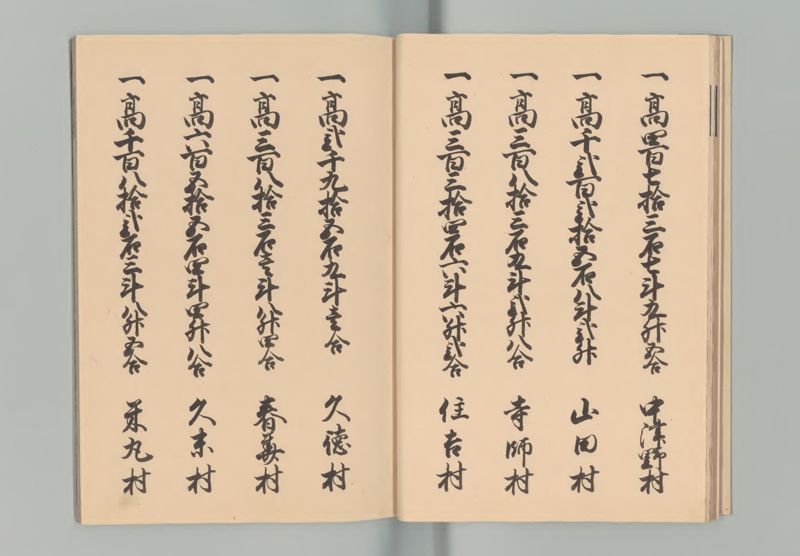 一高四百七拾三石七斗九升五合 中津野村
一高千弐百弐拾五石八斗弐升 山田村
一高三百八拾三石九斗弐升八合 寺師村
一高三百三拾四石六斗六升弐合 住吉村
一高弐千九拾五石九斗壱合 久徳村
一高三百八拾三石壱斗八升四合 春花村
一高六百五拾五石四斗四升八合 久末村
一高千百八拾弐石三斗八升五合 米丸村